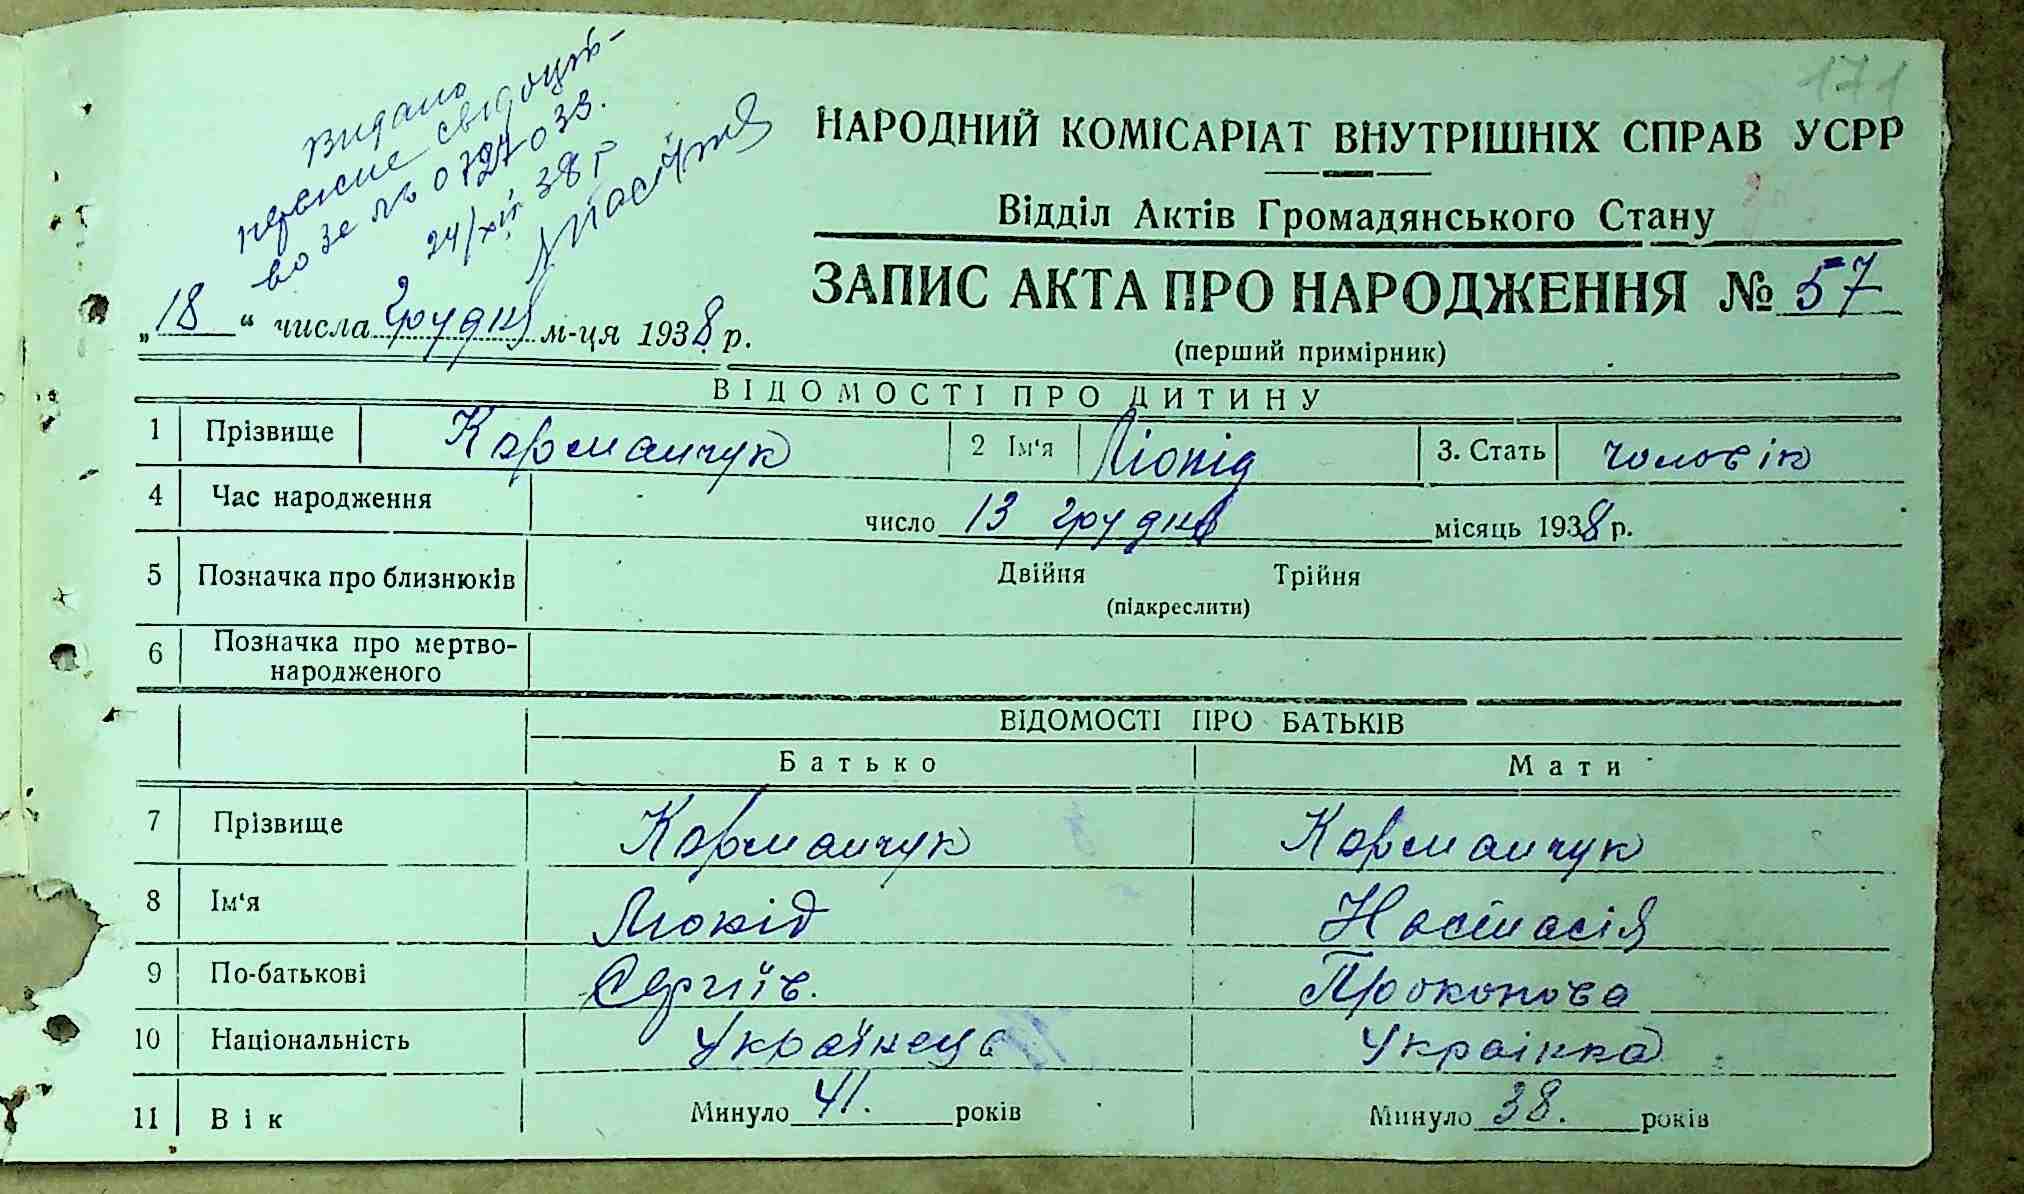 171
видано
первісне свідоцт-
во за № 072033.
24/XII 38 р
НАРОДНИЙ КОМІСАРІАТ ВНУТРІШНІХ СПРАВ УСРР
Відділ Актів Громадянського Стану
ЗАПИС АКТА ПРО НАРОДЖЕННЯ № 57
(перший примірник)
„18“ числа грудня м-ця 1938 р.
ВІДОМОСТІ ПРО ДИТИНУ
1 Прізвище Карманчук 2 Ім'я Ліонід 3. Стать чоловік
4 Час народження число 13 грудня місяць 1938 р.
5 Позначка про близнюків Двійня Трійня
(підкреслити)
6 Позначка про мертво-
народженого
ВІДОМОСТІ ПРО БАТЬКІВ
Батько Мати
7 Прізвище Карманчук Карманчук
8 Ім'я Ліонід Настасія
9 По-батькові Сергіїв. Прокопова
10 Національність Українець Украінка
11 Вік Минуло 41. років Минуло 38. років